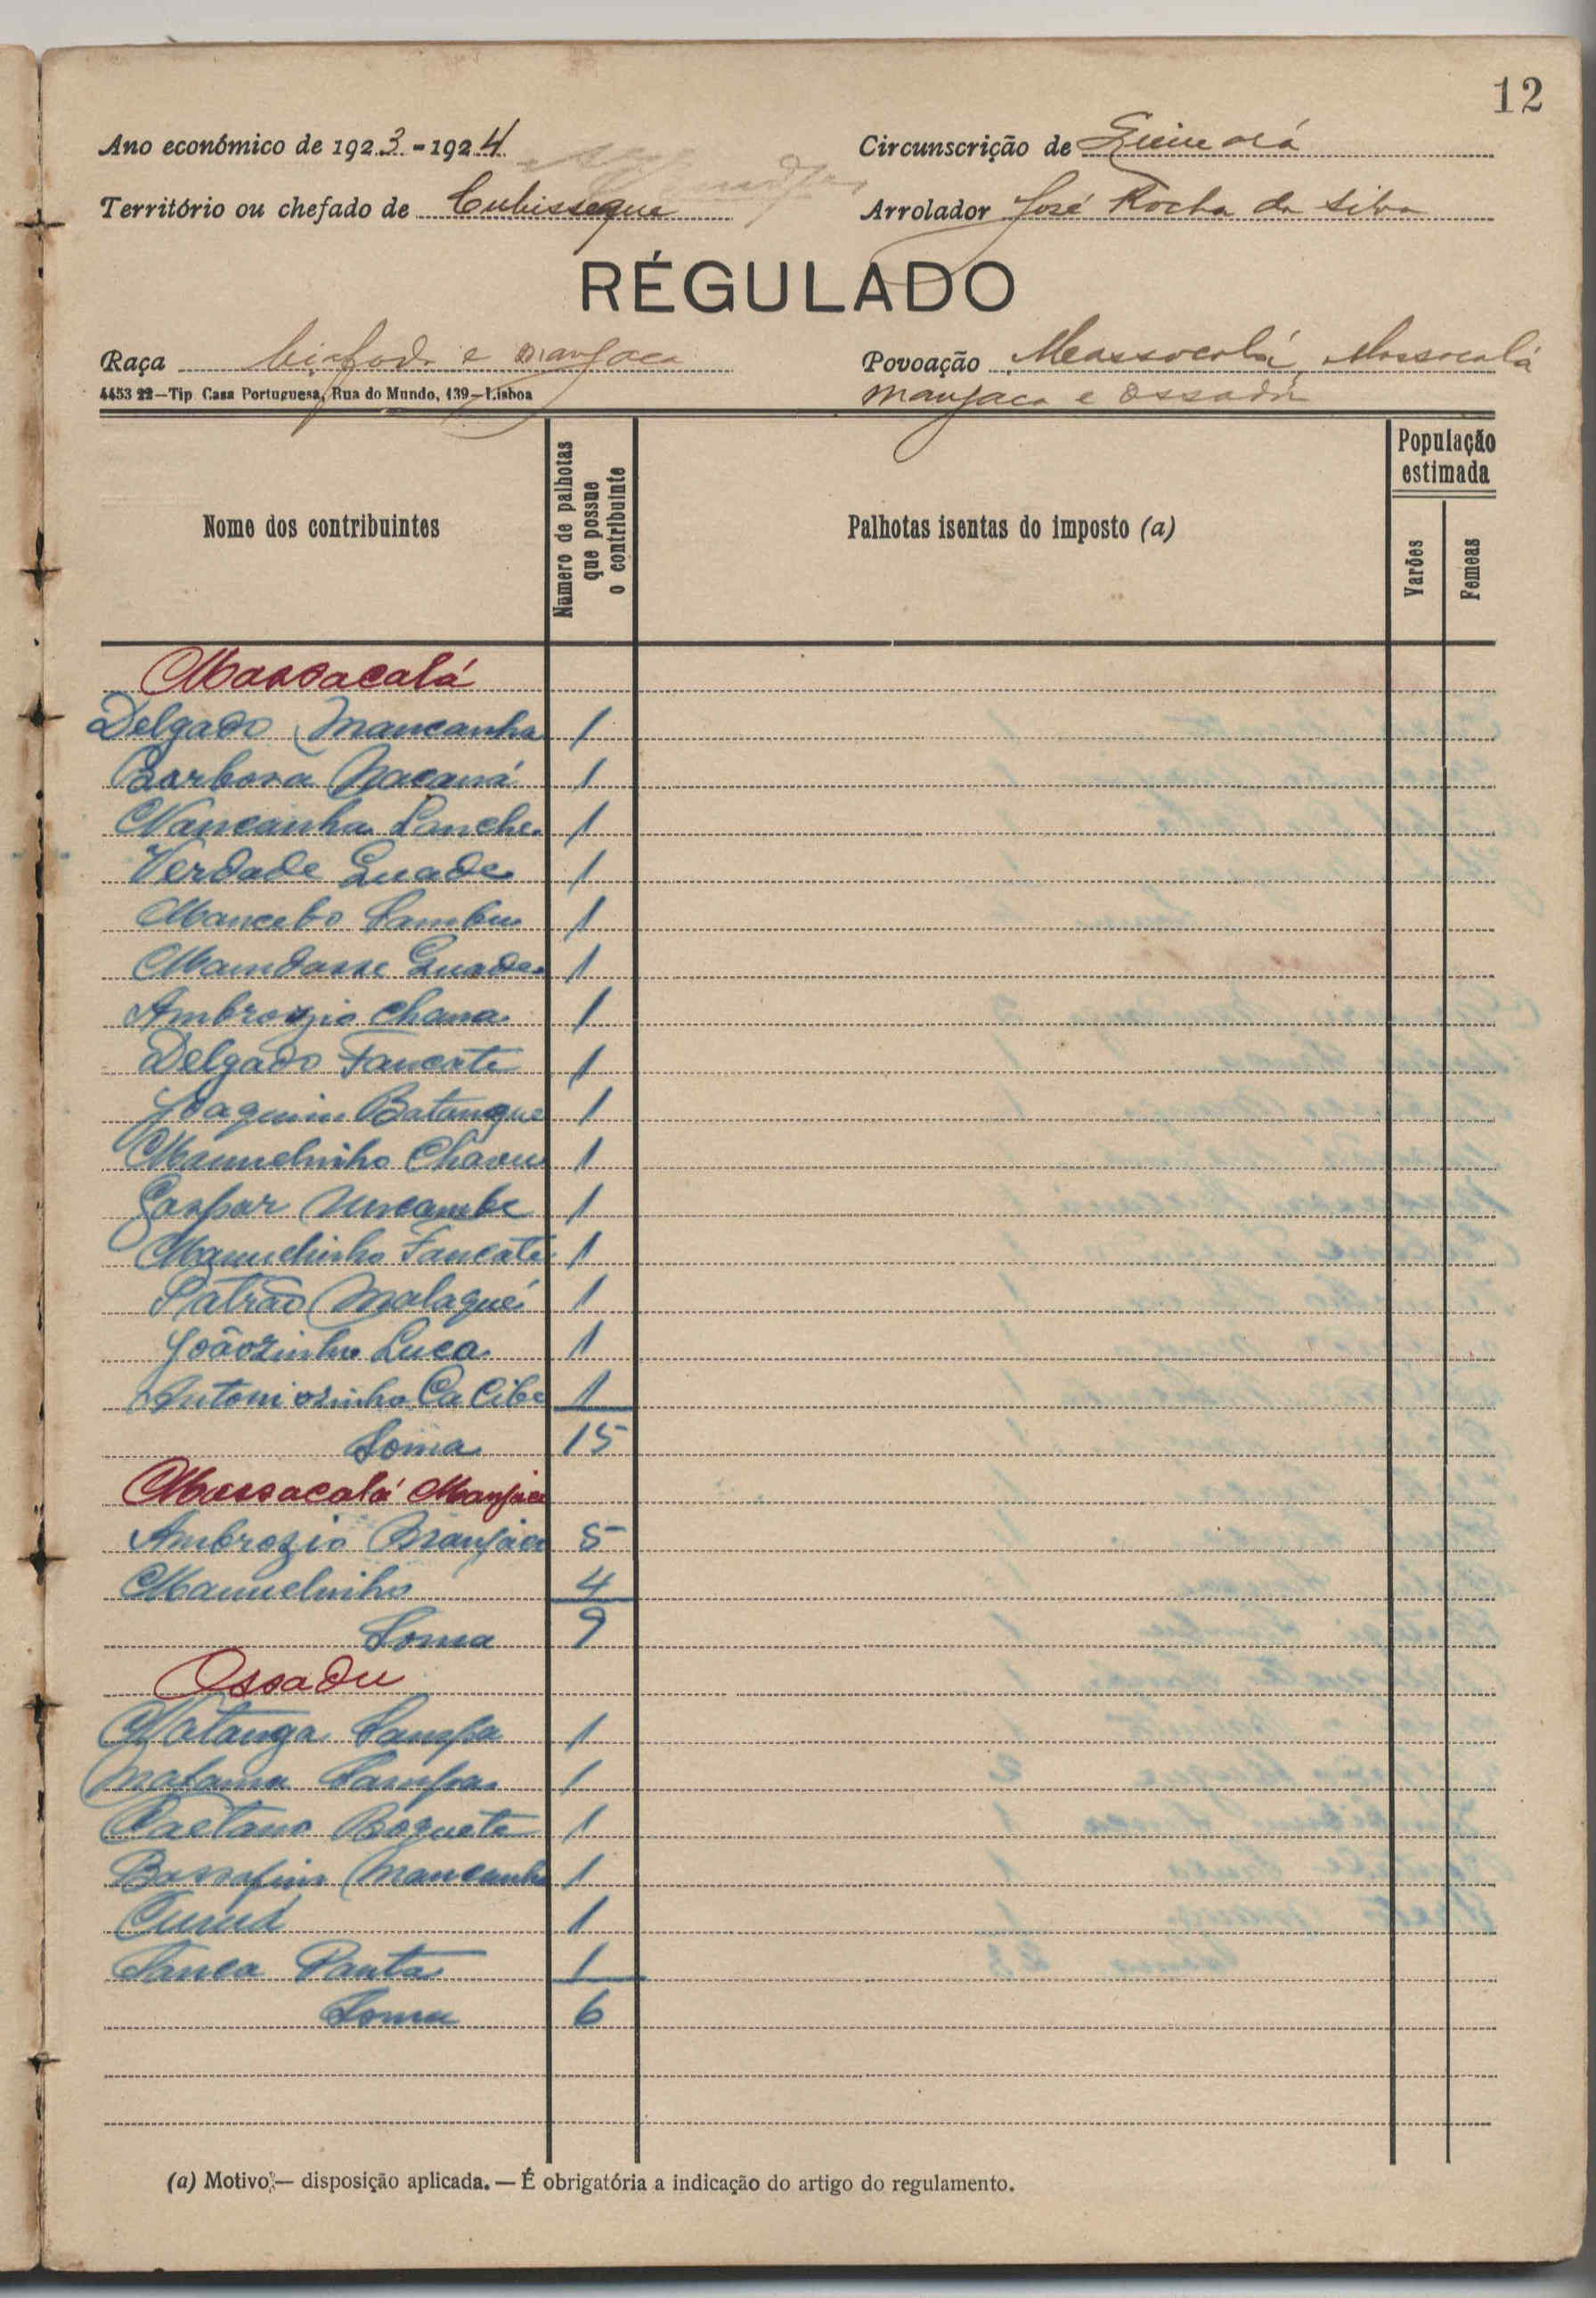 12
Ano económico de 1923-1924 Circunscrição de
Território ou chefado de Cubisseque Arrolador José Rocha da Silva
RÉGULADO
Raça biafada e manjaca Povoação Massacalá, Massacalá
4453 22—Tip. Casa Portuguesa, Rua do Mundo, 139—Lisboa manjaca e Ossadu
Nome dos contribuintes Numero de palhotas que possue o contribuinte Palhotas isentas do imposto (a) População estimada Varões Femeas
Massacalá
Delgado Mancanha 1
Barbosa 1
Nancanha Lanche 1
Verdade Quade 1
Mancebo Sambu 1
Quade 1
Ambrozio Chana 1
Delgado Fancate 1
Joaquim Batanque 1
Manuelinho 1
Gaspar Uncambe 1
Manuelinho Fancate 1
Patrão Malaqué 1
Joãozinho Luca 1
Antoniozinho Ca Cibe 1
Soma 15
Massacalá Manjaca
Ambrozio Manjaca 5
Manuelinho 4
Soma 9
Ossadu
Natanga Sampa 1
Sampa 1
Caetano Boquete 1
Bassafim Mancanha 1
1
Sanca Panta 1
Soma 6
(a) Motivo — disposição aplicada. — É obrigatória a indicação do artigo do regulamento.